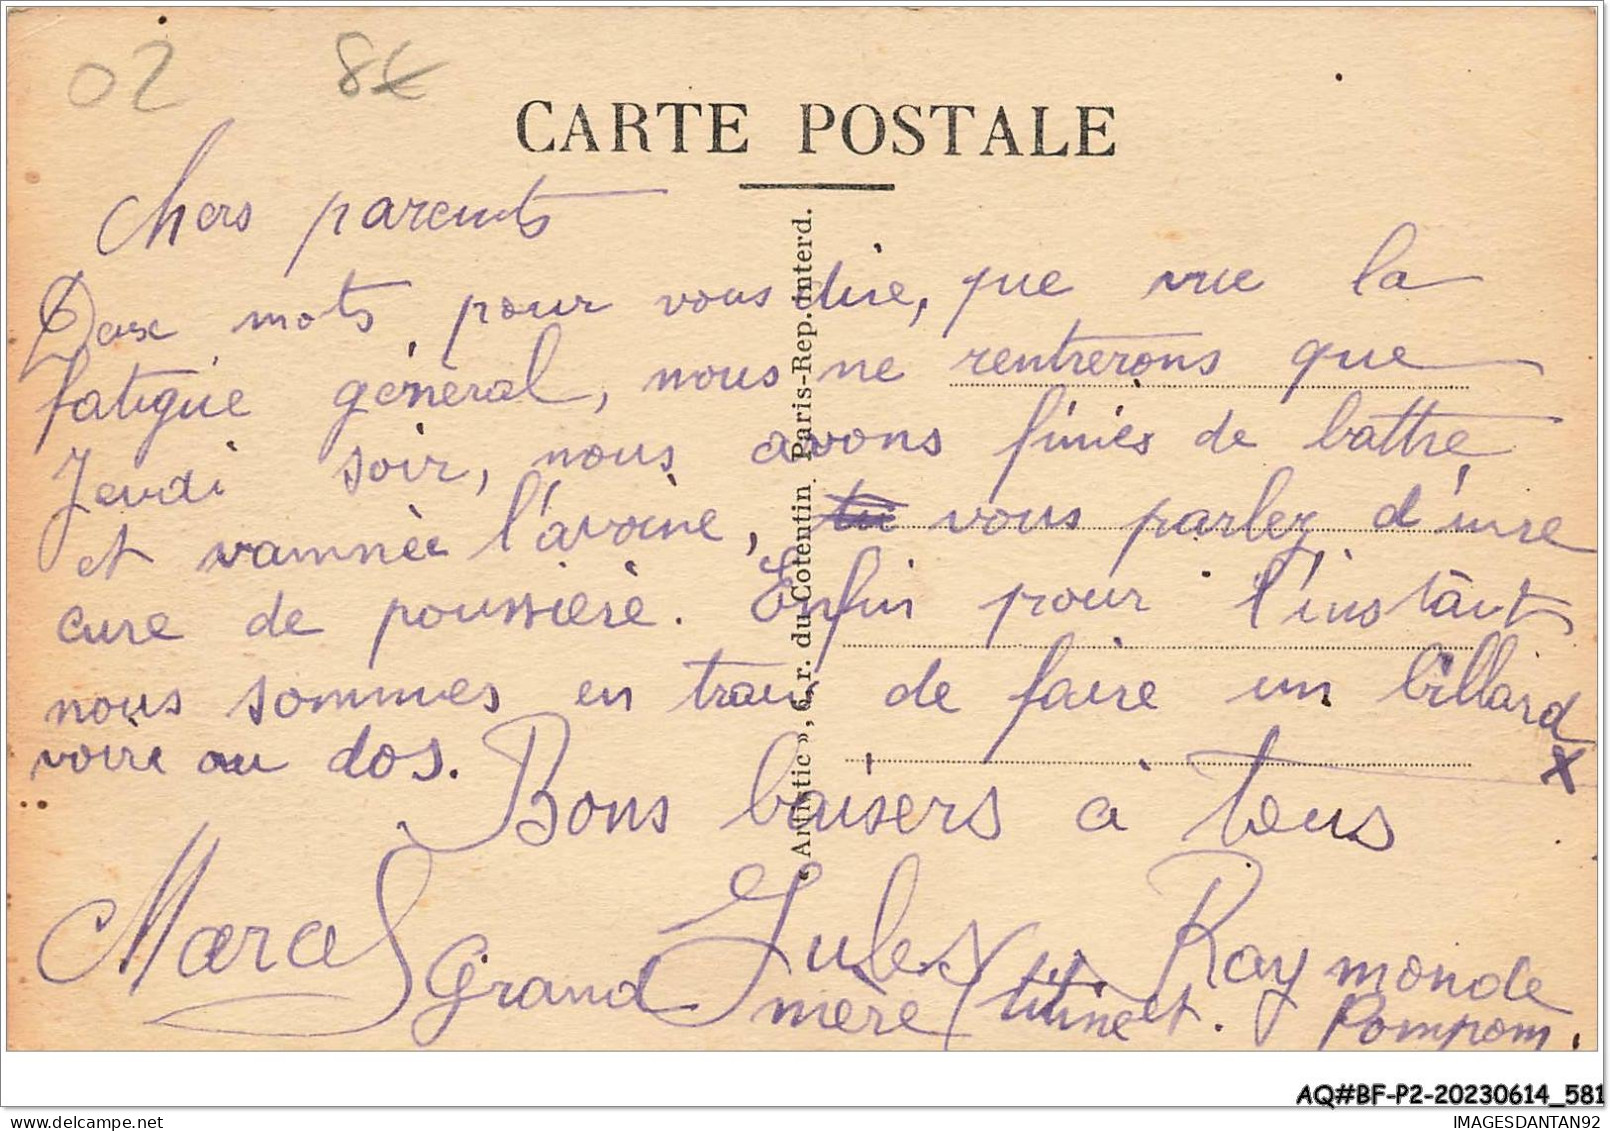 02 8€
CARTE POSTALE
Chers parents
Deux mots pour vous dire, que vue la
fatigue général, nous ne rentrerons que
Jeudi soir, nous avons finies de battre
et vannée l'avoine, vous parlez d'une
cure de poussière. Enfin pour l'instant
nous sommes en train de faire un billard
voire au dos. x
Bons baisers à tous
Marcel Jules Raymonde
Grand mère titine et. Pompom.
« Artistic », 6, r. du Cotentin. Paris-Rep. interd.
AQ#BF-P2-20230614_581
delcampe.net
IMAGESDANTAN92